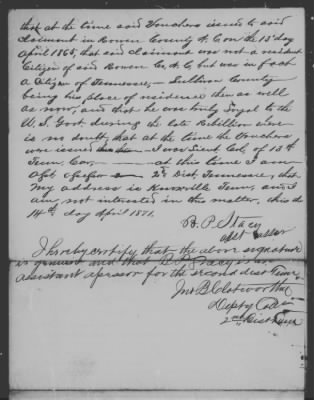 that at the time said Vouchers issued to said
Claimant in Rowan County N.C. on the 13 day
April 1865, that said claimant was not a resident
Citizen of said Rowan Co. N.C. but was in fact
a Citizen of Tennessee, Sullivan County
being his place of residence then as well
as now, and that he was truly Loyal to the
U.S. Govt. during the late Rebellion there
is no doubt, that at the time the Vouchers
were issued I was Lieut Col. of 13th
Tenn. Cav. at this time I am
Asst Assessor 2d Dist. Tennessee, that
My address is Knoxville Tenn, and I
am not interested in this matter, this the
14th day April 1871.
B. P. Stacy
Asst Assor
I hereby certify that the above signature
is genuine and that B P Stacy is an
assistant assessor for the second dist Tenn.
Jno B
Depty
2nd Dist Tenn